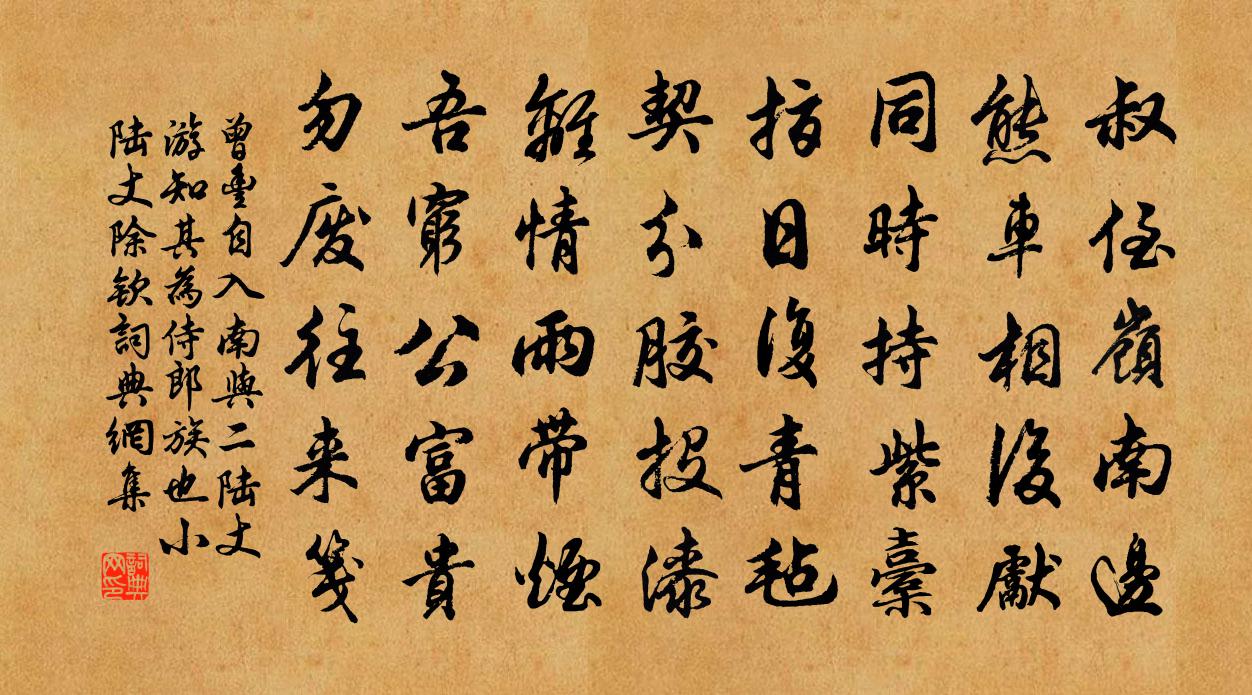 叔侄嶺南邊
熊車相後獻
同時持紫橐
指日復青氈
契分膠投漆
離情雨帶煙
吾窮公富貴
勿廢往来箋
曾豐自入南與二陆丈
游知其為侍郎族也小
陆丈除欽詞典網集
詞典网印